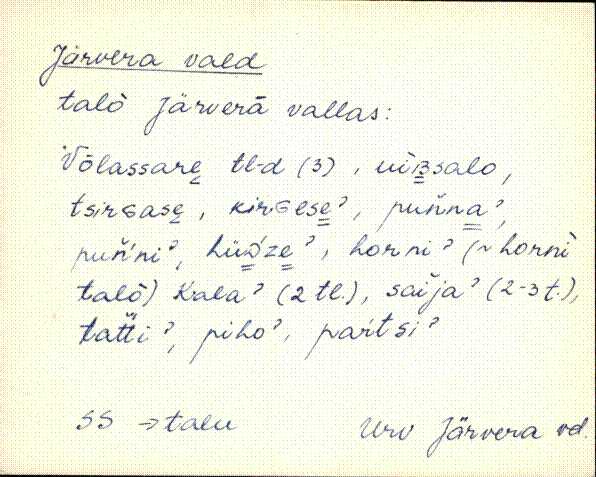 Järvera vald
talò Järverā vallas:
Võlassare̬ tl-d (3), ùiʙsalo,
tsirɢase̬, kirɢese̳ˀ, pun̆na̳ˀ,
puñ'niˀ, hüɔ̳́ze̳ˀ, horniˀ (~ hornì
talò) Kalaˀ (2 tl.), saijaˀ (2-3 t.),
tat̆tiˀ, pihoˀ, paŕtsiˀ
SS → talu
Urv Järvera vd.